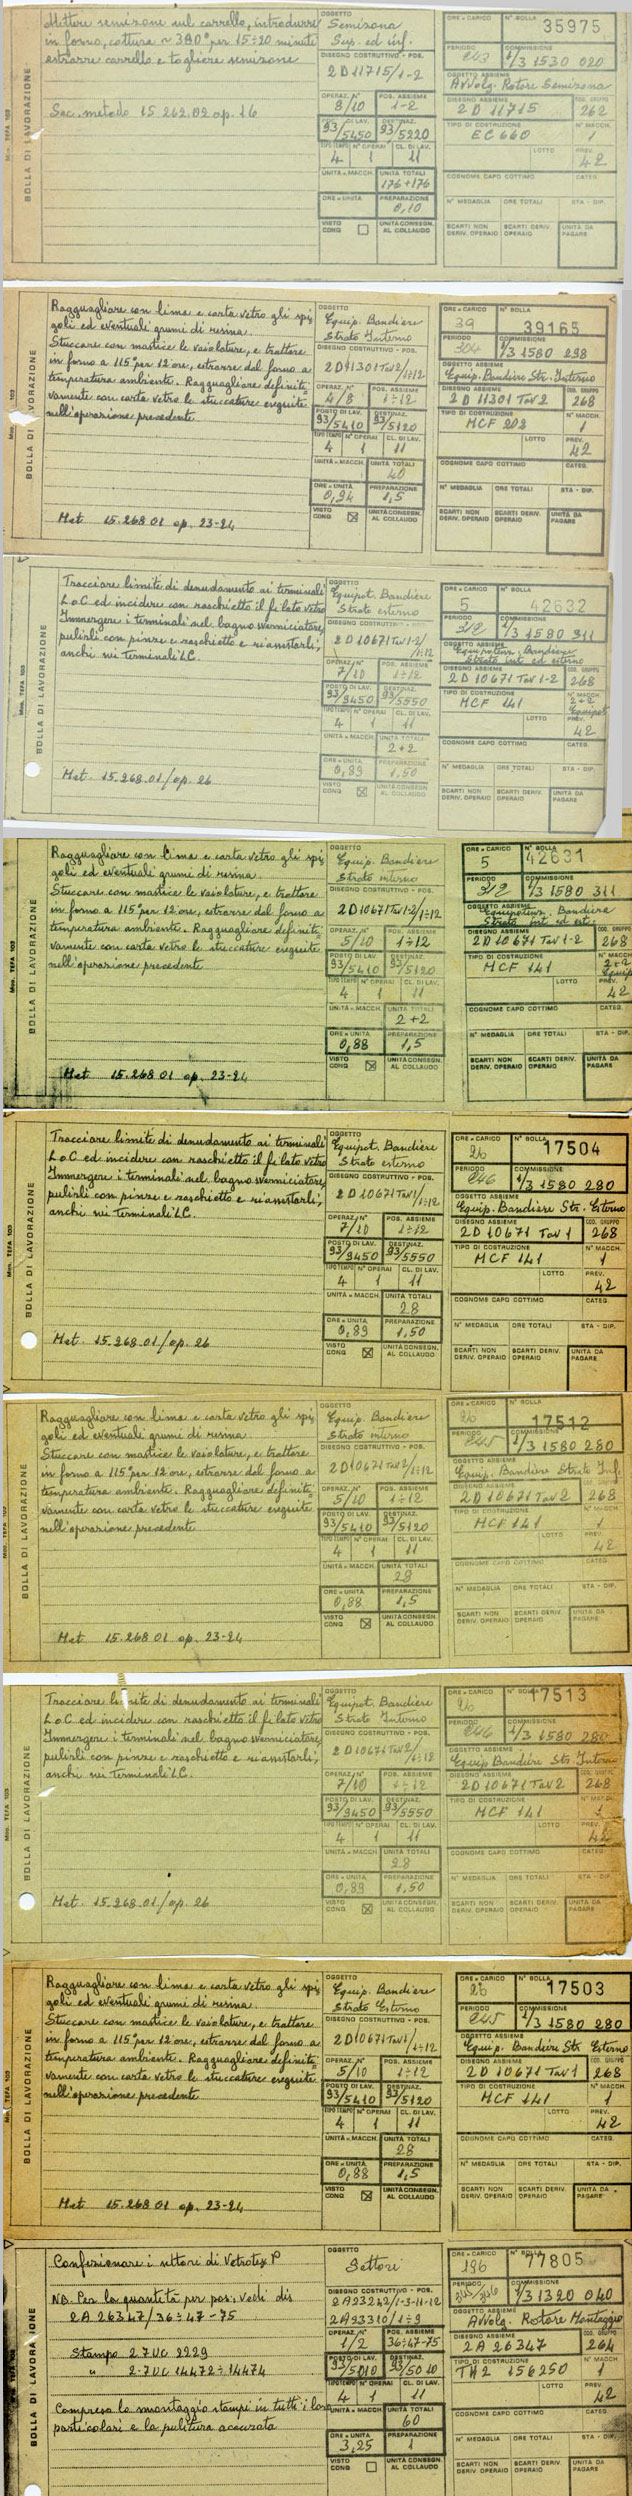 Mod. TEFA 103
BOLLA DI LAVORAZIONE
Mettere semizone sul carrello, introdurre
in forno, cottura ~ 380° per 15÷20 minuti
estrarre carrello e togliere semizone
Sec. metodo 15.262.02 op. 16
OGGETTO
Semizona
Sup. ed inf.
DISEGNO COSTRUTTIVO - POS.
2D11715/1-2
OPERAZ. N° POS. ASSIEME
8/10 1-2
POS. DI LAV. DESTINAZ.
93/5450 93/5220
TIPO TEMPO N° OPERAI CL. DI LAV.
4 1 11
UNITÀ = MACCH. UNITÀ TOTALI
176+176
ORE = UNITÀ PREPARAZIONE
0,10
VISTO CONG UNITÀ CONSEGN. AL COLLAUDO
ORE = CARICO N° BOLLA
35975
PERIODO COMMISSIONE
1/3 1530 020
OGGETTO ASSIEME
Avvolg. Rotore Semizona
DISEGNO ASSIEME COD. GRUPPO
2D 11715 262
TIPO DI COSTRUZIONE N° MACCH.
EC 660 1
LOTTO PREV.
42
COGNOME CAPO COTTIMO CATEG.
N° MEDAGLIA ORE TOTALI STA - DIP.
SCARTI NON DERIV. OPERAIO SCARTI DERIV. OPERAIO UNITÀ DA PAGARE
BOLLA DI LAVORAZIONE
Ragguagliare con lima e carta vetro gli spi,
goli ed eventuali grumi di resina.
Stuccare con mastice le vaiolature, e trattare
in forno a 115° per 12 ore, estrarre dal forno a
temperatura ambiente. Ragguagliare definiti=
vamente con carta vetro le stuccature eseguite
nell'operazione precedente
Met 15.268 01 op. 23-24
OGGETTO
Equip. Bandiere
Strato Interno
DISEGNO COSTRUTTIVO - POS.
2D11301 Tav2/1÷12
OPERAZ. N° POS. ASSIEME
4/8 1÷12
POSTO DI LAV. DESTINAZ.
93/5410 93/5120
TIPO TEMPO N° OPERAI CL. DI LAV.
4 1 11
UNITÀ = MACCH. UNITÀ TOTALI
40
ORE = UNITÀ PREPARAZIONE
0,94 1,5
VISTO CONG UNITÀ CONSEGN. AL COLLAUDO
ORE = CARICO N° BOLLA
39 39165
PERIODO COMMISSIONE
304 1/3 1580 298
OGGETTO ASSIEME
Equip. Bandiere Str. Interno
DISEGNO ASSIEME COD. GRUPPO
2D 11301 Tav 2 268
TIPO DI COSTRUZIONE N° MACCH.
MCF 202 1
LOTTO PREV.
42
COGNOME CAPO COTTIMO CATEG.
N° MEDAGLIA ORE TOTALI STA - DIP.
SCARTI NON DERIV. OPERAIO SCARTI DERIV. OPERAIO UNITÀ DA PAGARE
Mod. TEFA 103
BOLLA DI LAVORAZIONE
Tracciare limite di denudamento ai terminali
L o C ed incidere con raschietto il filato vetro
Immergere i terminali nel bagno sverniciatore,
pulirli con pinze e raschietto e riassestarli,
anchi nei Terminali LC.
Met. 15.268.01/op. 26
OGGETTO
Equipot. Bandiere
Strato esterno
DISEGNO COSTRUTTIVO - POS.
2D10671 Tav 1-2/1÷12
OPERAZ. N° POS. ASSIEME
7/10 1÷12
POSTO DI LAV. DESTINAZ.
93/9450 93/5550
TIPO TEMPO N° OPERAI CL. DI LAV.
4 1 11
UNITÀ = MACCH. UNITÀ TOTALI
2+2
ORE = UNITÀ PREPARAZIONE
0,89 1,50
VISTO CONG UNITÀ CONSEGN. AL COLLAUDO
ORE = CARICO N° BOLLA
5 42632
PERIODO COMMISSIONE
312 1/3 1580 311
OGGETTO ASSIEME
Equipoten. Bandiere
Strato int ed esterno
DISEGNO ASSIEME COD. GRUPPO
2D 10671 Tav 1-2 268
TIPO DI COSTRUZIONE N° MACCH.
MCF 141 2+2
Equipot
LOTTO PREV.
42
COGNOME CAPO COTTIMO CATEG.
N° MEDAGLIA ORE TOTALI STA - DIP.
SCARTI NON DERIV. OPERAIO SCARTI DERIV. OPERAIO UNITÀ DA PAGARE
Mod. TEFA 103
BOLLA DI LAVORAZIONE
Ragguagliare con lima e carta vetro gli spi,
goli ed eventuali grumi di resina.
Stuccare con mastice le vaiolature, e trattare
in forno a 115° per 12 ore, estrarre dal forno a
temperatura ambiente. Ragguagliare definiti=
vamente con carta vetro le stuccature eseguite
nell'operazione precedente
Met 15.268 01 op. 23-24
OGGETTO
Equip. Bandiere
Strato interno
DISEGNO COSTRUTTIVO - POS.
2D10671 Tav 1-2/1÷12
OPERAZ. N° POS. ASSIEME
5/10 1÷12
POSTO DI LAV. DESTINAZ.
93/5410 93/5120
TIPO TEMPO N° OPERAI CL. DI LAV.
4 1 11
UNITÀ = MACCH. UNITÀ TOTALI
2+2
ORE = UNITÀ PREPARAZIONE
0,88 1,5
VISTO CONG UNITÀ CONSEGN. AL COLLAUDO
ORE = CARICO N° BOLLA
5 42631
PERIODO COMMISSIONE
312 1/3 1580 311
OGGETTO ASSIEME
Equipoten. Bandiere
Strato int ed est.
DISEGNO ASSIEME COD. GRUPPO
2D 10671 Tav 1-2 268
TIPO DI COSTRUZIONE N° MACCH.
MCF 141 2+2
Equip
LOTTO PREV.
42
COGNOME CAPO COTTIMO CATEG.
N° MEDAGLIA ORE TOTALI STA - DIP.
SCARTI NON DERIV. OPERAIO SCARTI DERIV. OPERAIO UNITÀ DA PAGARE
Mod. TEFA 103
BOLLA DI LAVORAZIONE
Tracciare limite di denudamento ai terminali
L o C ed incidere con raschietto il filato vetro
Immergere i terminali nel bagno sverniciatore,
pulirli con pinze e raschietto e riassestarli,
anchi nei Terminali LC.
Met. 15.268.01/op. 26
OGGETTO
Equipot. Bandiere
Strato esterno
DISEGNO COSTRUTTIVO - POS.
2D10671 Tav1/1÷12
OPERAZ. N° POS. ASSIEME
7/10 1÷12
POSTO DI LAV. DESTINAZ.
93/9450 93/5550
TIPO TEMPO N° OPERAI CL. DI LAV.
4 1 11
UNITÀ = MACCH. UNITÀ TOTALI
28
ORE = UNITÀ PREPARAZIONE
0,89 1,50
VISTO CONG UNITÀ CONSEGN. AL COLLAUDO
ORE = CARICO N° BOLLA
26 17504
PERIODO COMMISSIONE
246 1/3 1580 280
OGGETTO ASSIEME
Equip. Bandiere Str. Esterno
DISEGNO ASSIEME COD. GRUPPO
2D 10671 Tav 1 268
TIPO DI COSTRUZIONE N° MACCH.
MCF 141 1
LOTTO PREV.
42
COGNOME CAPO COTTIMO CATEG.
N° MEDAGLIA ORE TOTALI STA - DIP.
SCARTI NON DERIV. OPERAIO SCARTI DERIV. OPERAIO UNITÀ DA PAGARE
BOLLA DI LAVORAZIONE
Ragguagliare con lima e carta vetro gli spi,
goli ed eventuali grumi di resina.
Stuccare con mastice le vaiolature, e trattare
in forno a 115° per 12 ore, estrarre dal forno a
temperatura ambiente. Ragguagliare definiti=
vamente con carta vetro le stuccature eseguite
nell'operazione precedente
Met 15.268 01 op. 23-24
OGGETTO
Equip. Bandiere
Strato interno
DISEGNO COSTRUTTIVO - POS.
2D10671 Tav2/1÷12
OPERAZ. N° POS. ASSIEME
5/10 1÷12
POSTO DI LAV. DESTINAZ.
93/5410 93/5120
TIPO TEMPO N° OPERAI CL. DI LAV.
4 1 11
UNITÀ = MACCH. UNITÀ TOTALI
28
ORE = UNITÀ PREPARAZIONE
0,88 1,5
VISTO CONG UNITÀ CONSEGN. AL COLLAUDO
ORE = CARICO N° BOLLA
26 17512
PERIODO COMMISSIONE
245 1/3 1580 280
OGGETTO ASSIEME
Equip. Bandiere Strato Inf.
DISEGNO ASSIEME COD. GRUPPO
2D 10671 Tav 2 268
TIPO DI COSTRUZIONE N° MACCH.
MCF 141 1
LOTTO PREV.
42
COGNOME CAPO COTTIMO CATEG.
N° MEDAGLIA ORE TOTALI STA - DIP.
SCARTI NON DERIV. OPERAIO SCARTI DERIV. OPERAIO UNITÀ DA PAGARE
Mod. TEFA 103
BOLLA DI LAVORAZIONE
Tracciare limite di denudamento ai terminali
L o C ed incidere con raschietto il filato vetro
Immergere i terminali nel bagno sverniciatore,
pulirli con pinze e raschietto e riassestarli,
anchi nei Terminali LC.
Met. 15.268.01/op. 26
OGGETTO
Equipot. Bandiere
Strato Interno
DISEGNO COSTRUTTIVO - POS.
2D10671 Tav2/1÷12
OPERAZ. N° POS. ASSIEME
7/10 1÷12
POSTO DI LAV. DESTINAZ.
93/9450 93/5550
TIPO TEMPO N° OPERAI CL. DI LAV.
4 1 11
UNITÀ = MACCH. UNITÀ TOTALI
28
ORE = UNITÀ PREPARAZIONE
0,89 1,50
VISTO CONG UNITÀ CONSEGN. AL COLLAUDO
ORE = CARICO N° BOLLA
26 17513
PERIODO COMMISSIONE
246 1/3 1580 280
OGGETTO ASSIEME
Equip Bandiere Str Interno
DISEGNO ASSIEME COD. GRUPPO
2D 10671 Tav 2 268
TIPO DI COSTRUZIONE N° MACCH.
MCF 141 1
LOTTO PREV.
42
COGNOME CAPO COTTIMO CATEG.
N° MEDAGLIA ORE TOTALI STA - DIP.
SCARTI NON DERIV. OPERAIO SCARTI DERIV. OPERAIO UNITÀ DA PAGARE
BOLLA DI LAVORAZIONE
Ragguagliare con lima e carta vetro gli spi,
goli ed eventuali grumi di resina.
Stuccare con mastice le vaiolature, e trattare
in forno a 115° per 12 ore, estrarre dal forno a
temperatura ambiente. Ragguagliare definiti=
vamente con carta vetro le stuccature eseguite
nell'operazione precedente
Met 15.268 01 op. 23-24
OGGETTO
Equip. Bandiere
Strato Esterno
DISEGNO COSTRUTTIVO - POS.
2D10671 Tav1/1÷12
OPERAZ. N° POS. ASSIEME
5/10 1÷12
POSTO DI LAV. DESTINAZ.
93/5410 93/5120
TIPO TEMPO N° OPERAI CL. DI LAV.
4 1 11
UNITÀ = MACCH. UNITÀ TOTALI
28
ORE = UNITÀ PREPARAZIONE
0,88 1,5
VISTO CONG UNITÀ CONSEGN. AL COLLAUDO
ORE = CARICO N° BOLLA
26 17503
PERIODO COMMISSIONE
245 1/3 1580 280
OGGETTO ASSIEME
Equip Bandiere Str Esterno
DISEGNO ASSIEME COD. GRUPPO
2D 10671 Tav 1 268
TIPO DI COSTRUZIONE N° MACCH.
MCF 141 1
LOTTO PREV.
42
COGNOME CAPO COTTIMO CATEG.
N° MEDAGLIA ORE TOTALI STA - DIP.
SCARTI NON DERIV. OPERAIO SCARTI DERIV. OPERAIO UNITÀ DA PAGARE
Mod. TEFA 103
BOLLA DI LAVORAZIONE
Confezionare i settori di Vetrotex P
NB. Per la quantità per pos: vedi dis
2A 26347/36÷47-75
Stampo 2.7UC 2229
" 2.7UC 14472÷14474
Compreso lo montaggio stampi in tutti i loro
particolari e la pulitura accurata
OGGETTO
Settori
DISEGNO COSTRUTTIVO - POS.
2A93242/1-3-11-12
2A93310/1÷9
OPERAZ. N° POS. ASSIEME
1/2 36÷47-75
POSTO DI LAV. DESTINAZ.
93/5010 93/5010
TIPO TEMPO N° OPERAI CL. DI LAV.
4 1 11
UNITÀ = MACCH. UNITÀ TOTALI
60
ORE = UNITÀ PREPARAZIONE
3,25 1
VISTO CONG UNITÀ CONSEGN. AL COLLAUDO
ORE = CARICO N° BOLLA
196 77805
PERIODO COMMISSIONE
1/3 1320 040
OGGETTO ASSIEME
Avvolg. Rotore Montaggio
DISEGNO ASSIEME COD. GRUPPO
2A 26347 264
TIPO DI COSTRUZIONE N° MACCH.
TH2 156250 1
LOTTO PREV.
42
COGNOME CAPO COTTIMO CATEG.
N° MEDAGLIA ORE TOTALI STA - DIP.
SCARTI NON DERIV. OPERAIO SCARTI DERIV. OPERAIO UNITÀ DA PAGARE